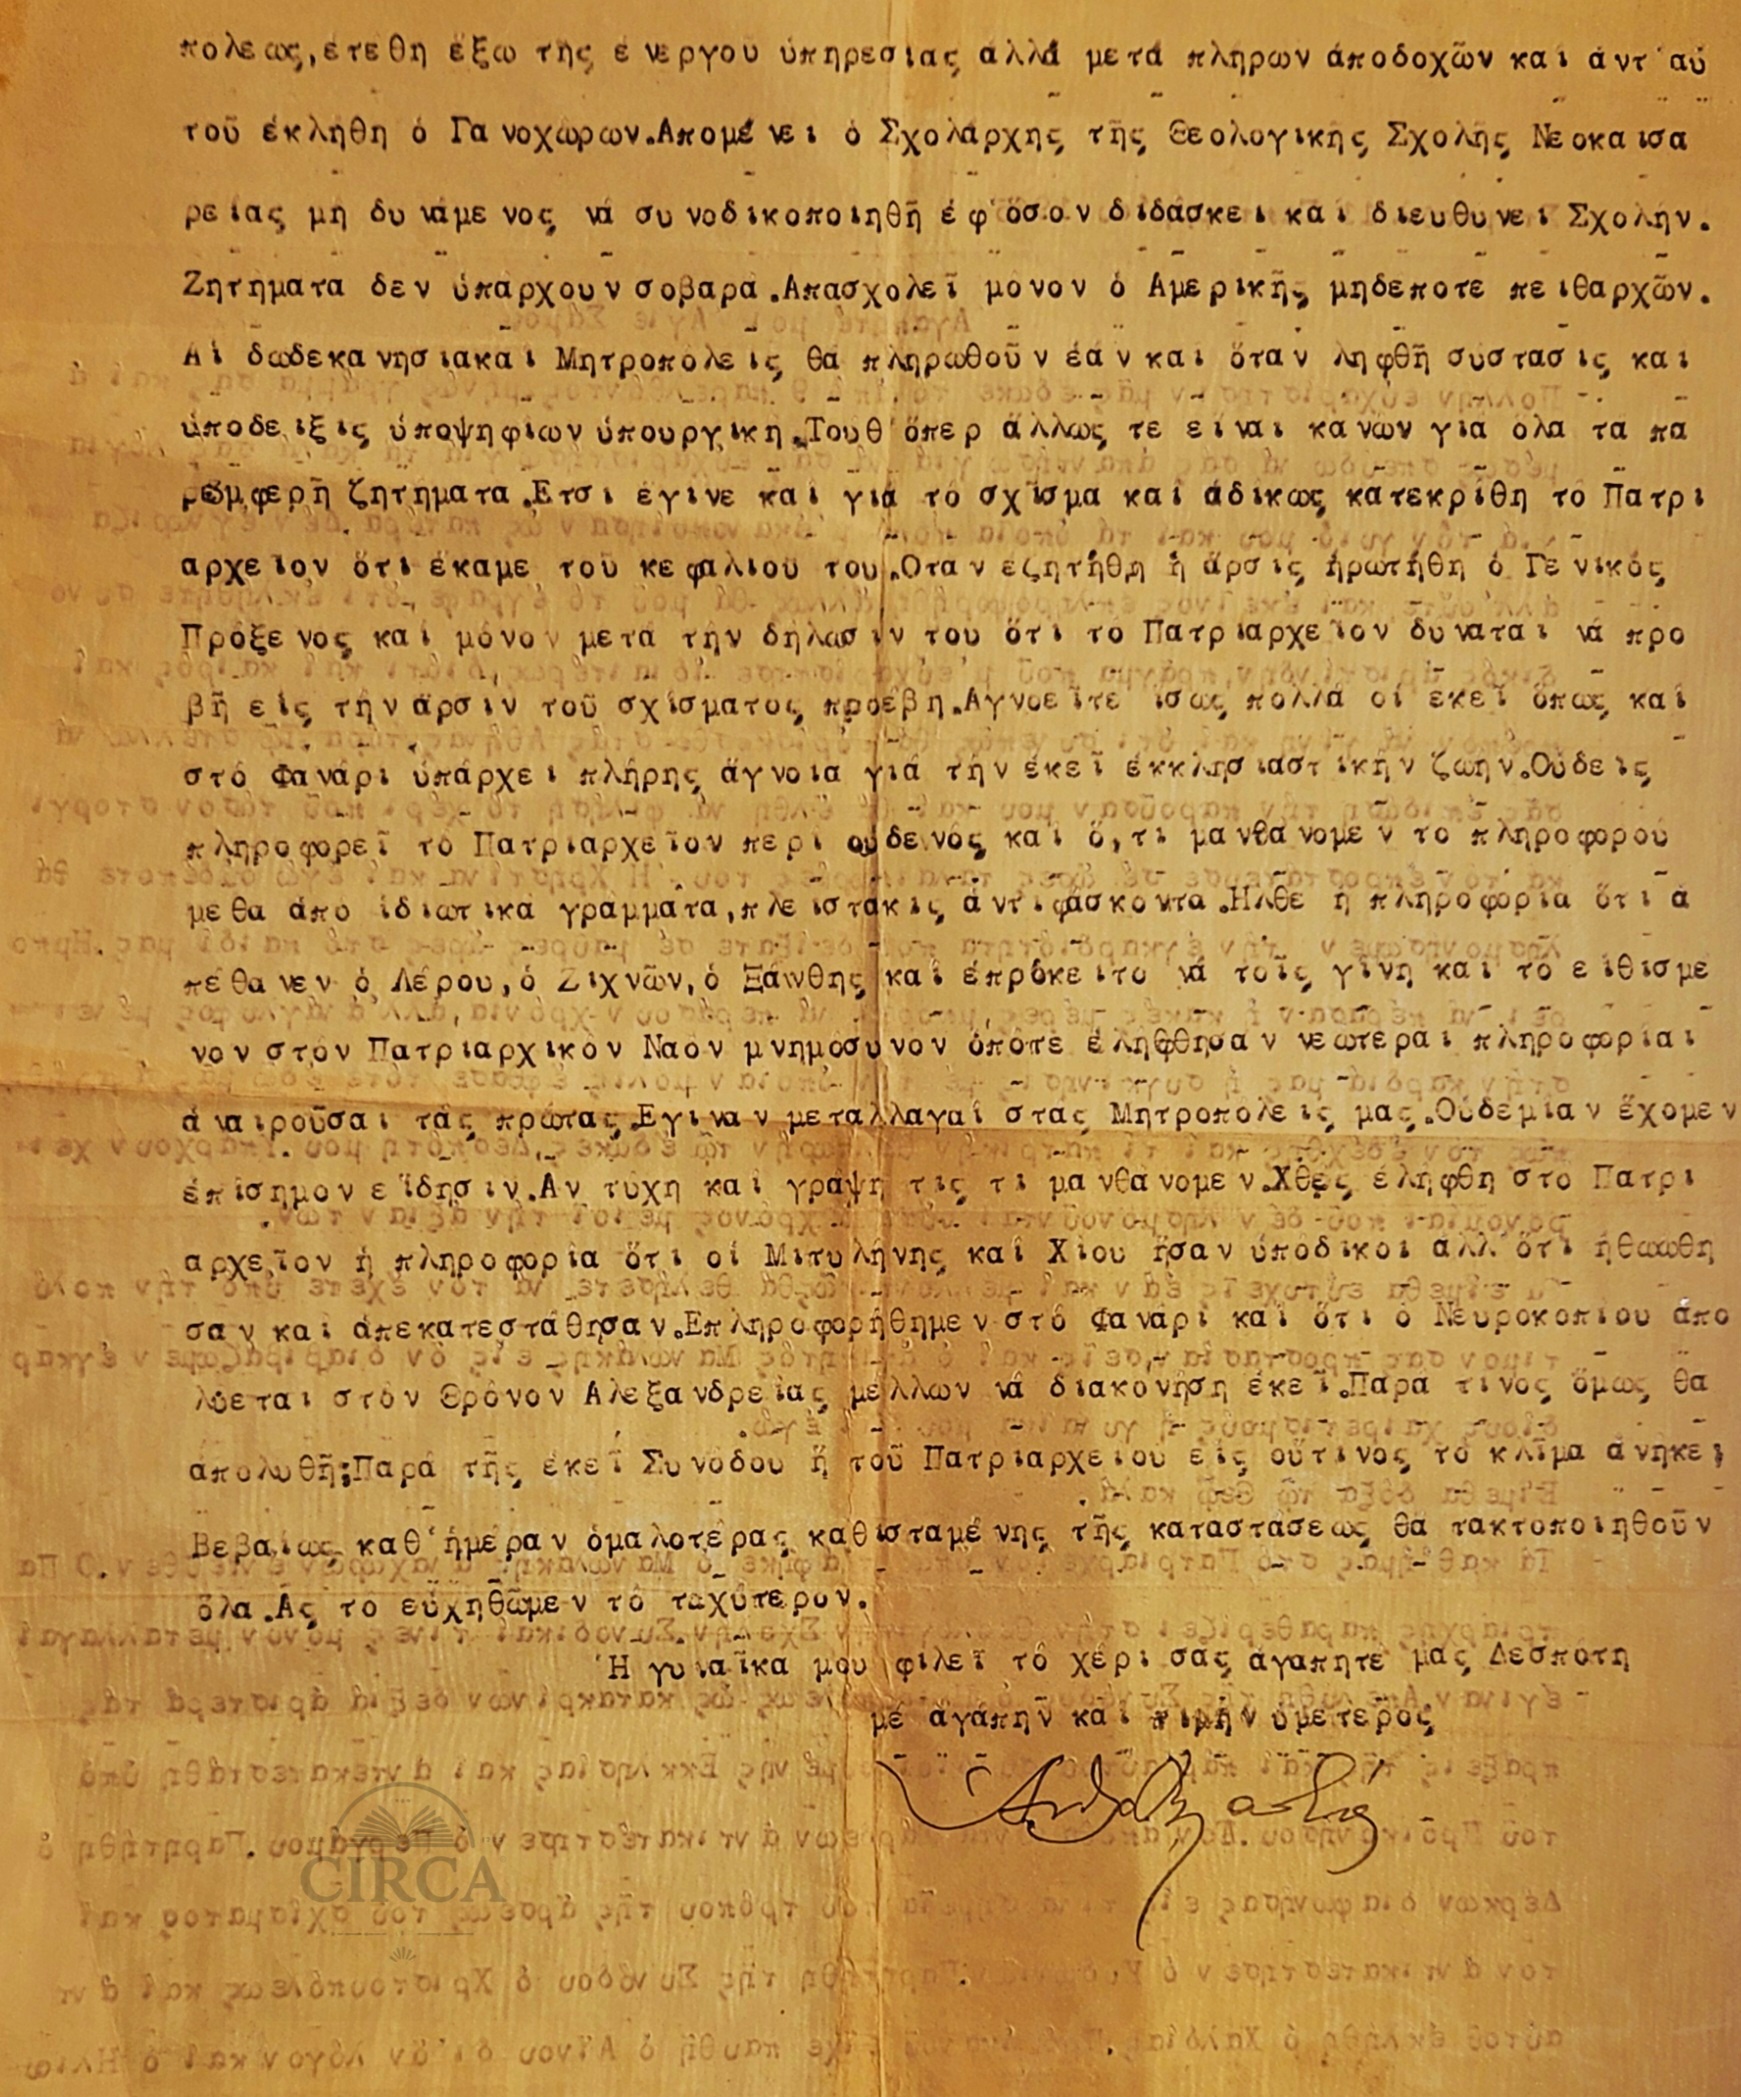 πολεως,ετεθη έξω της ενεργου ύπηρεσιας αλλά μετά πληρων άποδοχῶν και άντ'αύ
τοῦ έκληθη ό Γανοχωρων.Απομένει ό Σχολάρχης τῆς Θεολογικης Σχολῆς Νεοκαισα
ρείας μη δυνάμενος νά συνοδικοποιηθῆ έφ'ὅσον διδάσκει και διευθυνει Σχολην.
Ζητηματα δεν ύπαρχουν σοβαρα.Απασχολεῖ μονον ό Αμερικῆς μηδεποτε πειθαρχῶν.
Αί δωδεκανησιακαι Μητροπολεις θα πληρωθοῦν έαν και ὅταν ληφθῆ συστασις και
ύποδειξις ύποψηφιων ύπουργικη.Τουθ'ὅπερ ἄλλως τε είναι κανών για όλα τα πα
ρεμφερῆ ζητηματα.Ετσι έγινε και γιά τό σχῖσμα καί άδικως κατεκρίθη τό Πατρι
αρχειον ὅτι έκαμε τοῦ κεφαλιοῦ του.Οταν εζητήθη ή ἄρσις ήρωτήθη ό Γενικός
Πρόξενος καί μόνον μετά τήν δήλωσιν του ὅτι το Πατριαρχεῖον δυναται νά προ
βῆ είς τήν ἄρσιν τοῦ σχίσματος προέβη.Αγνοεῖτε ίσως πολλά οί εκεῖ ὅπως καί
στό Φανάρι ύπάρχει πλήρης ἄγνοια γιά τήν έκεῖ έκκλησιαστικήν ζωην.Ούδεις
πληροφορεῖ τό Πατριαρχεῖον περι ουδενός καί ὅ,τι μανθανομεν το πληροφορού
μεθα άπο ίδιωτικά γραμματα,πλειστάκις άντιφάσκοντα.Ηλθε η πληροφορία ὅτι ά
πέθανεν ό Λέρου,ό Ζιχνῶν,ό Ξάνθης καί έπρόκειτο νά τοῖς γίνη και το είθισμε
νον στόν Πατριαρχικόν Ναόν μνημόσυνον όπότε έληφθησαν νεωτεραι πληροφορίαι
άναιροῦσαι τάς πρώτας.Εγιναν μεταλλαγαί στας Μητροπολεις μας.Ούδεμίαν ἔχομεν
έπίσημον εἴδησιν.Αν τύχη καί γράψη τις τι μανθανομεν.Χθες έληφθη στο Πατρι
αρχεῖον ή πληροφορία ὅτι οί Μιτυλήνης καί Χίου ῆσαν ύπόδικοι άλλ'ὅτι ήθωωθη
σαν καί άπεκατεστάθησαν.Επληροφορήθημεν στό Φανάρι καί ὅτι ό Νευροκοπίου άπο
λύεται στόν Θρόνον Αλεξανδρείας μέλλων νά διακονήση έκεῖ.Παρα τινος ὅμως θα
άπολυθῆ;Παρά τῆς έκεῖ Συνόδου ἤ τοῦ Πατριαρχείου είς οὕτινος τό κλῖμα άνηκει
Βεβαίως καθ'ήμέραν όμαλοτέρας καθισταμένης τῆς καταστάσεως θα τακτοποιηθοῦν
όλα.Ας το εύχηθῶμεν τό ταχύτερον.
Ή γυναῖκα μου φιλεῖ τό χέρι σας άγαπητέ μας Δεσπότη
μέ άγάπην καί τιμήν ύμετερος
CIRCA